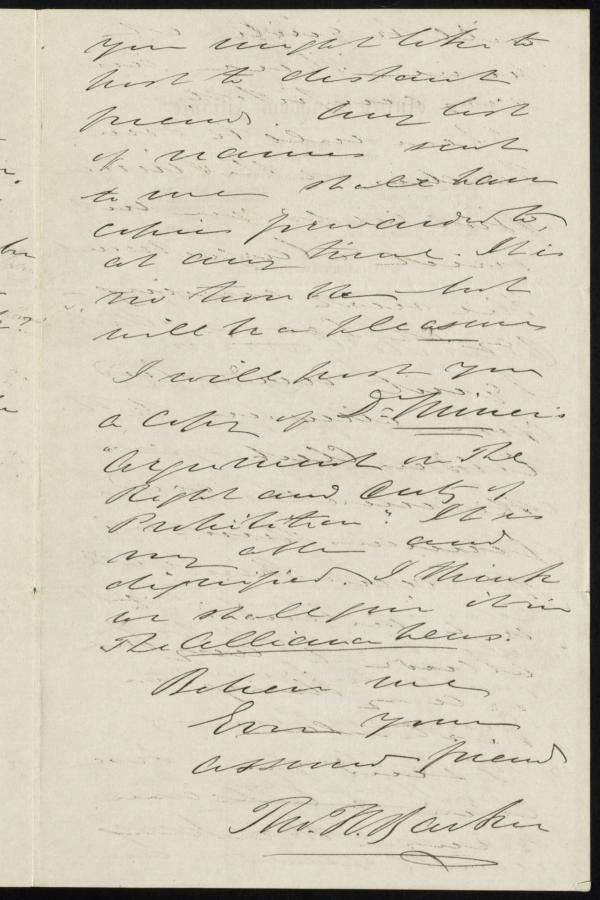 you might like to
post to distant
friends. Any list
of names sent
to me shall have
copies forwarded to,
at any time. It is
no trouble but
will be a pleasure
I will post you
a copy of Dr Miner's
"Argument on the
Right and Duty of
Prohibition". It is
very able and
dignified. I think
we shall give it in
The Alliance News.
Believe me
Ever your
assured friend
Tho. H. Barker